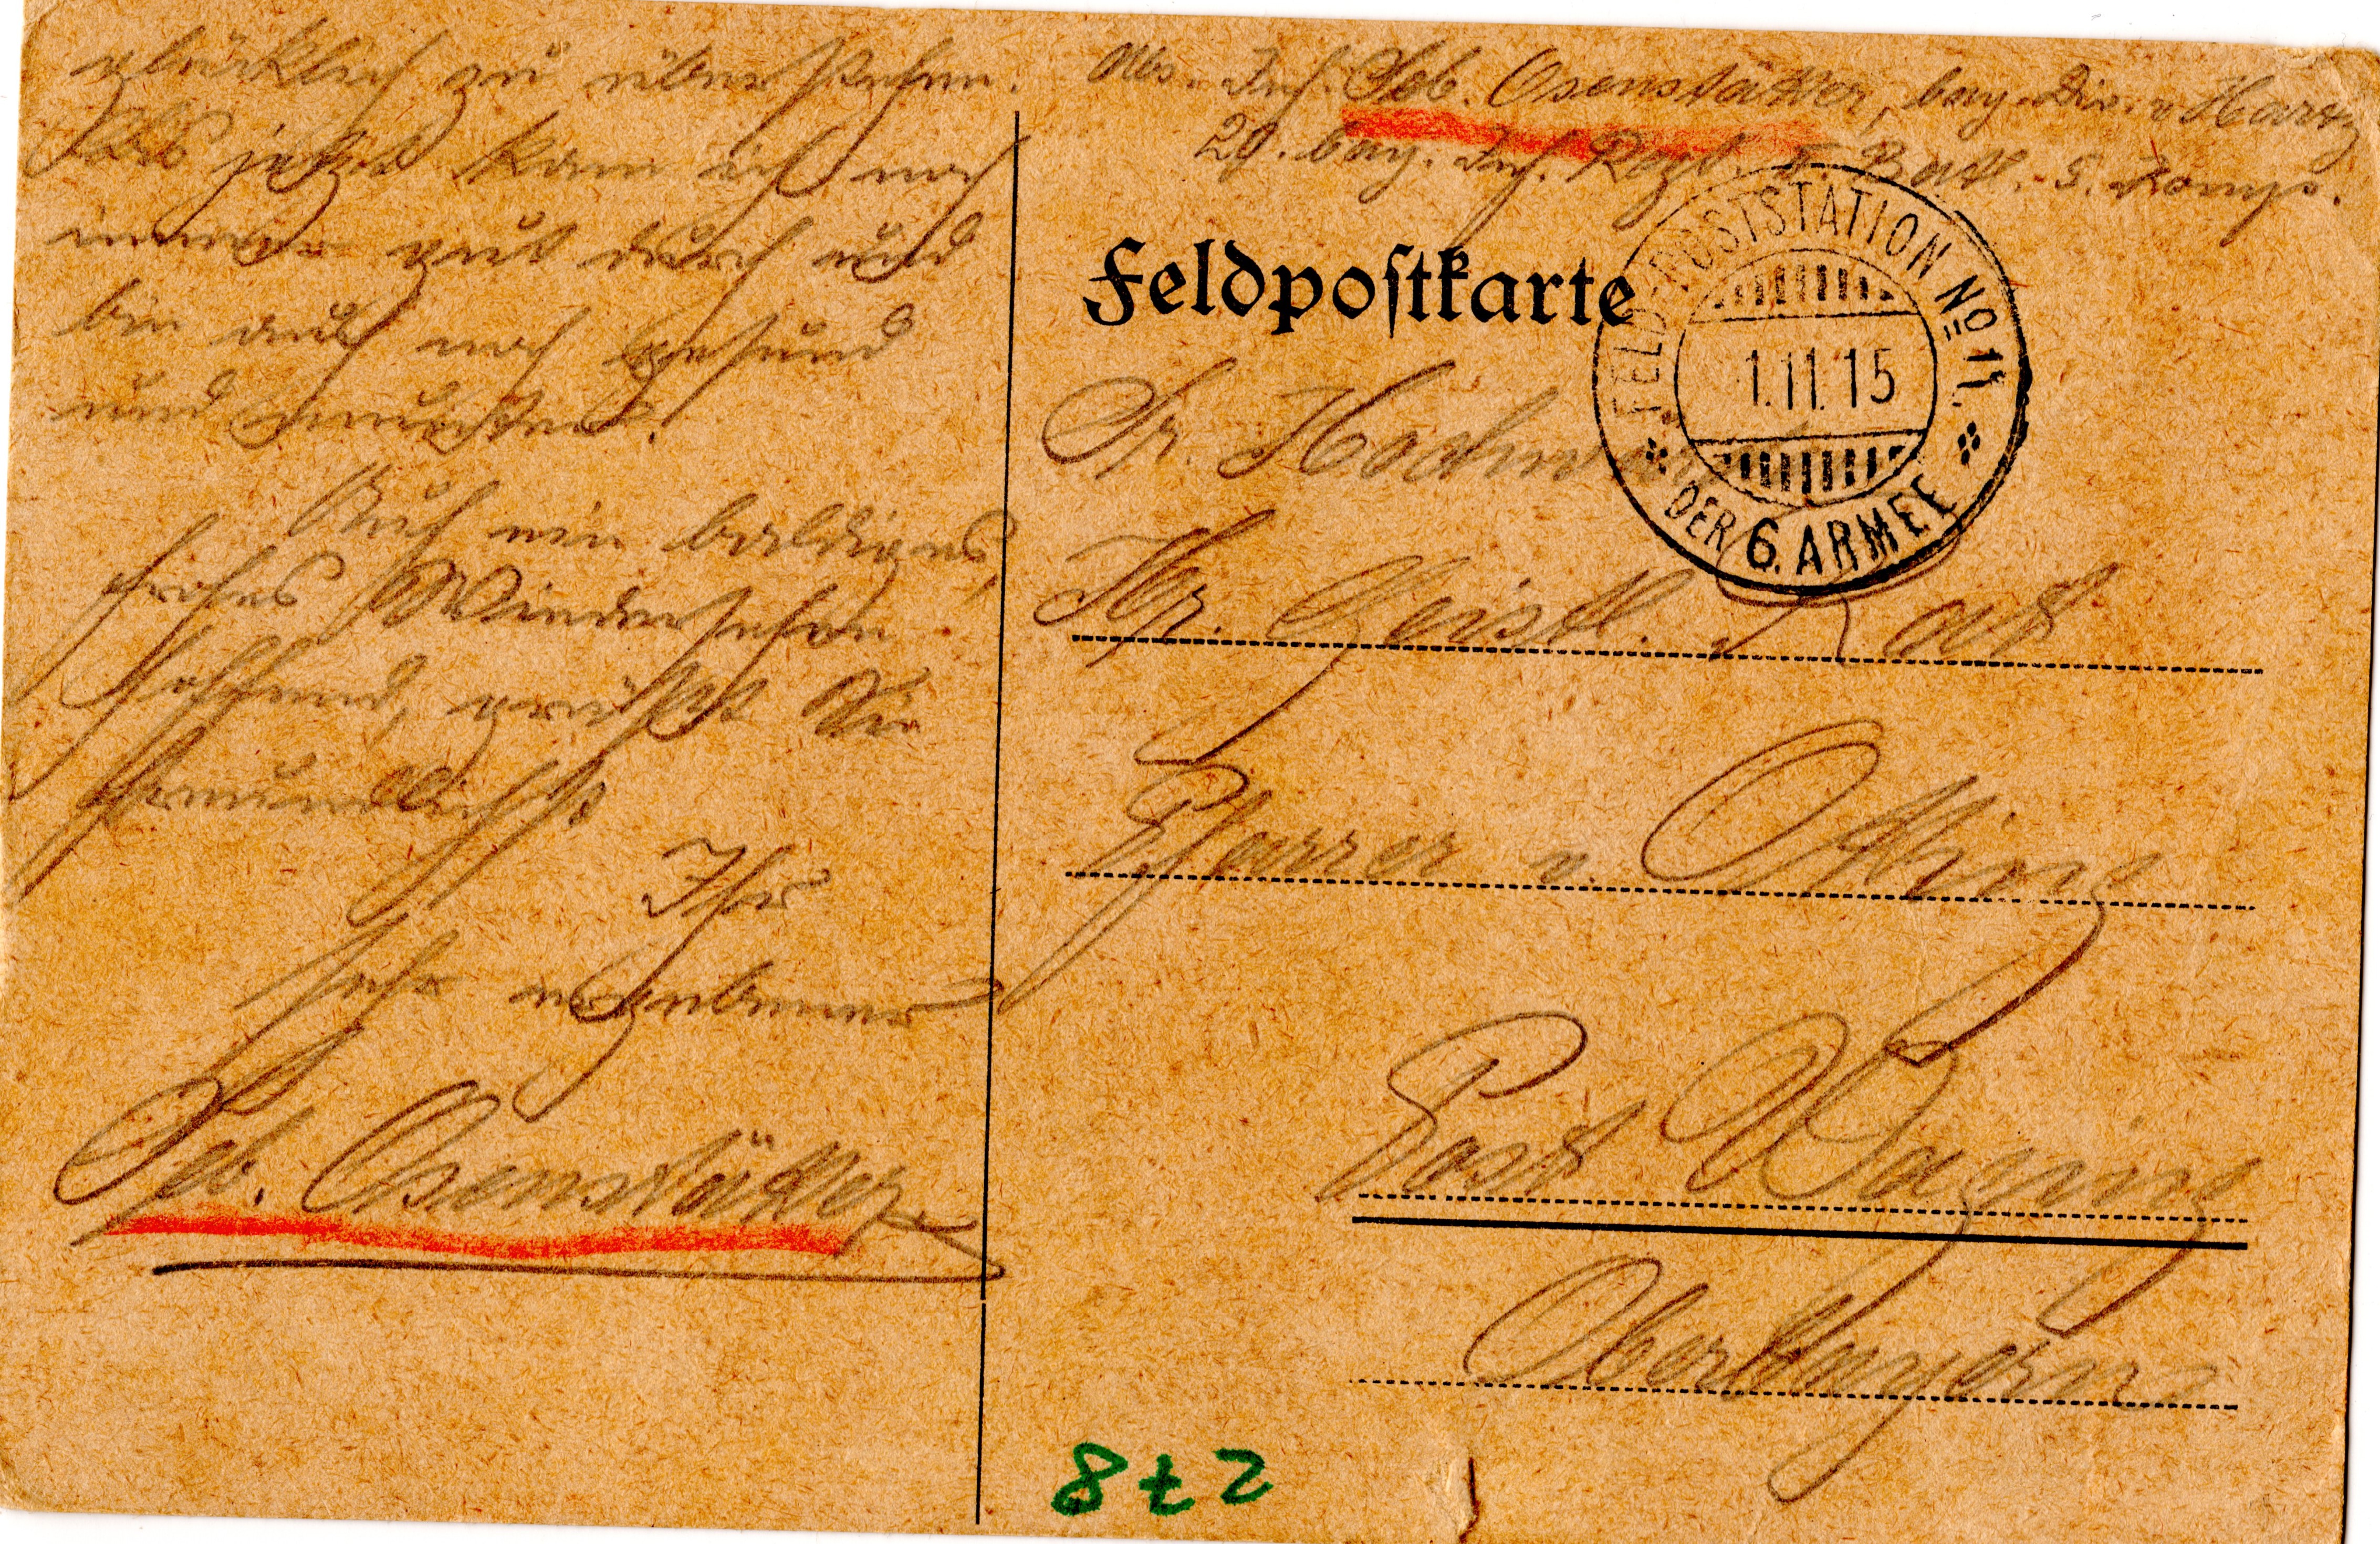 glücklich zu überstehen.
Bis jetzt kam ich noch
immer gut durch und
bin auch noch gesund
und munter.
Auf ein baldiges,
frohes Wiedersehen
hoffend, grüßt Sie
freundlichst
Ihr
sehr ergebener
Seb. Osenstätter
Abs. Inf. Seb. Osenstätter, bay. Div. v. Hartz
20. bay. Inf. Regt. II. Batl. 5. Komp.
Feldpostkarte
FELD-POSTSTATION No 11.
1.11.15
DER 6. ARMEE
Sr. Hochw.
Hr. Geistl. Rat
Pfarrer v. Otting
Post Waging
Oberbayern
872